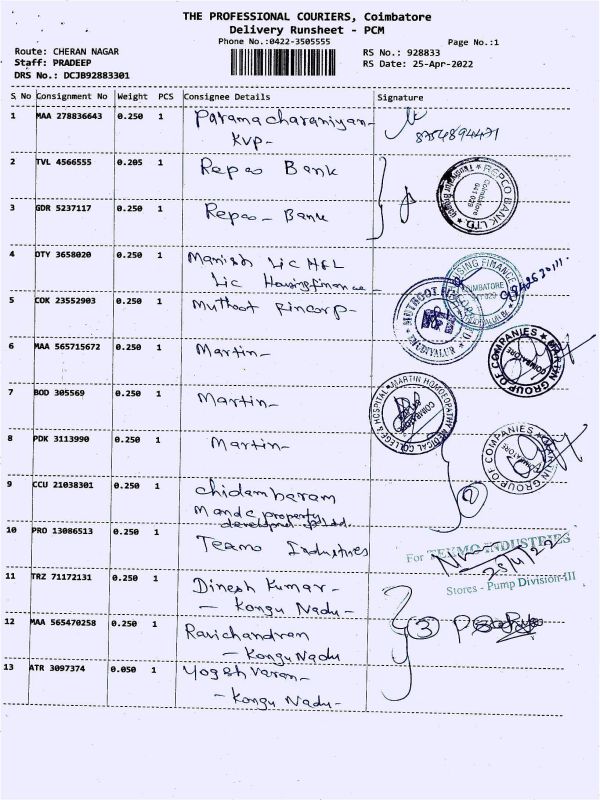 THE PROFESSIONAL COURIERS, Coimbatore
Delivery Runsheet - PCM
Phone No.:0422-3505555
Page No.:1
Route: CHERAN NAGAR
RS No.: 928833
Staff: PRADEEP
RS Date: 25-Apr-2022
DRS No.: DCJB92883301
S No Consignment No Weight PCS Consignee Details Signature
1 MAA 278836643 0.250 1
KVP-
8754894471
2 TVL 4566555 0.205 1 Repco Bank
REPCO BANK LTD.
Coimbatore
641 029
3 GDR 5237117 0.250 1 Repco - Bank
4 OTY 3658020 0.250 1 Manish Lic HFL
Lic Housingfinance
HOUSING FINANCE
COIMBATORE
5 COK 23552903 0.250 1 Muthoot Fincorp-
MUTHOOT
6 MAA 565715672 0.250 1 Martin-
MARTIN GROUP OF COMPANIES
COIMBATORE
7 BOD 305569 0.250 1 Martin-
MARTIN HOMOEOPATHY MEDICAL COLLEGE & HOSPITAL
COIMBATORE
8 PDK 3113990 0.250 1 Martin-
MARTIN GROUP OF COMPANIES
COIMBATORE
9 CCU 21038301 0.250 1 Chidambaram
M and C property
2
10 PRO 13086513 0.250 1 Texmo Industries
For TEXMO INDUSTRIES
25/4/22
Stores - Pump Division-III
11 TRZ 71172131 0.250 1 Dinesh Kumar-
- Kongu Nadu-
12 MAA 565470258 0.250 1 Ravichandran
- Kongu Nadu
3
13 ATR 3097374 0.050 1 Yogeshvaran-
- Kongu Nadu-